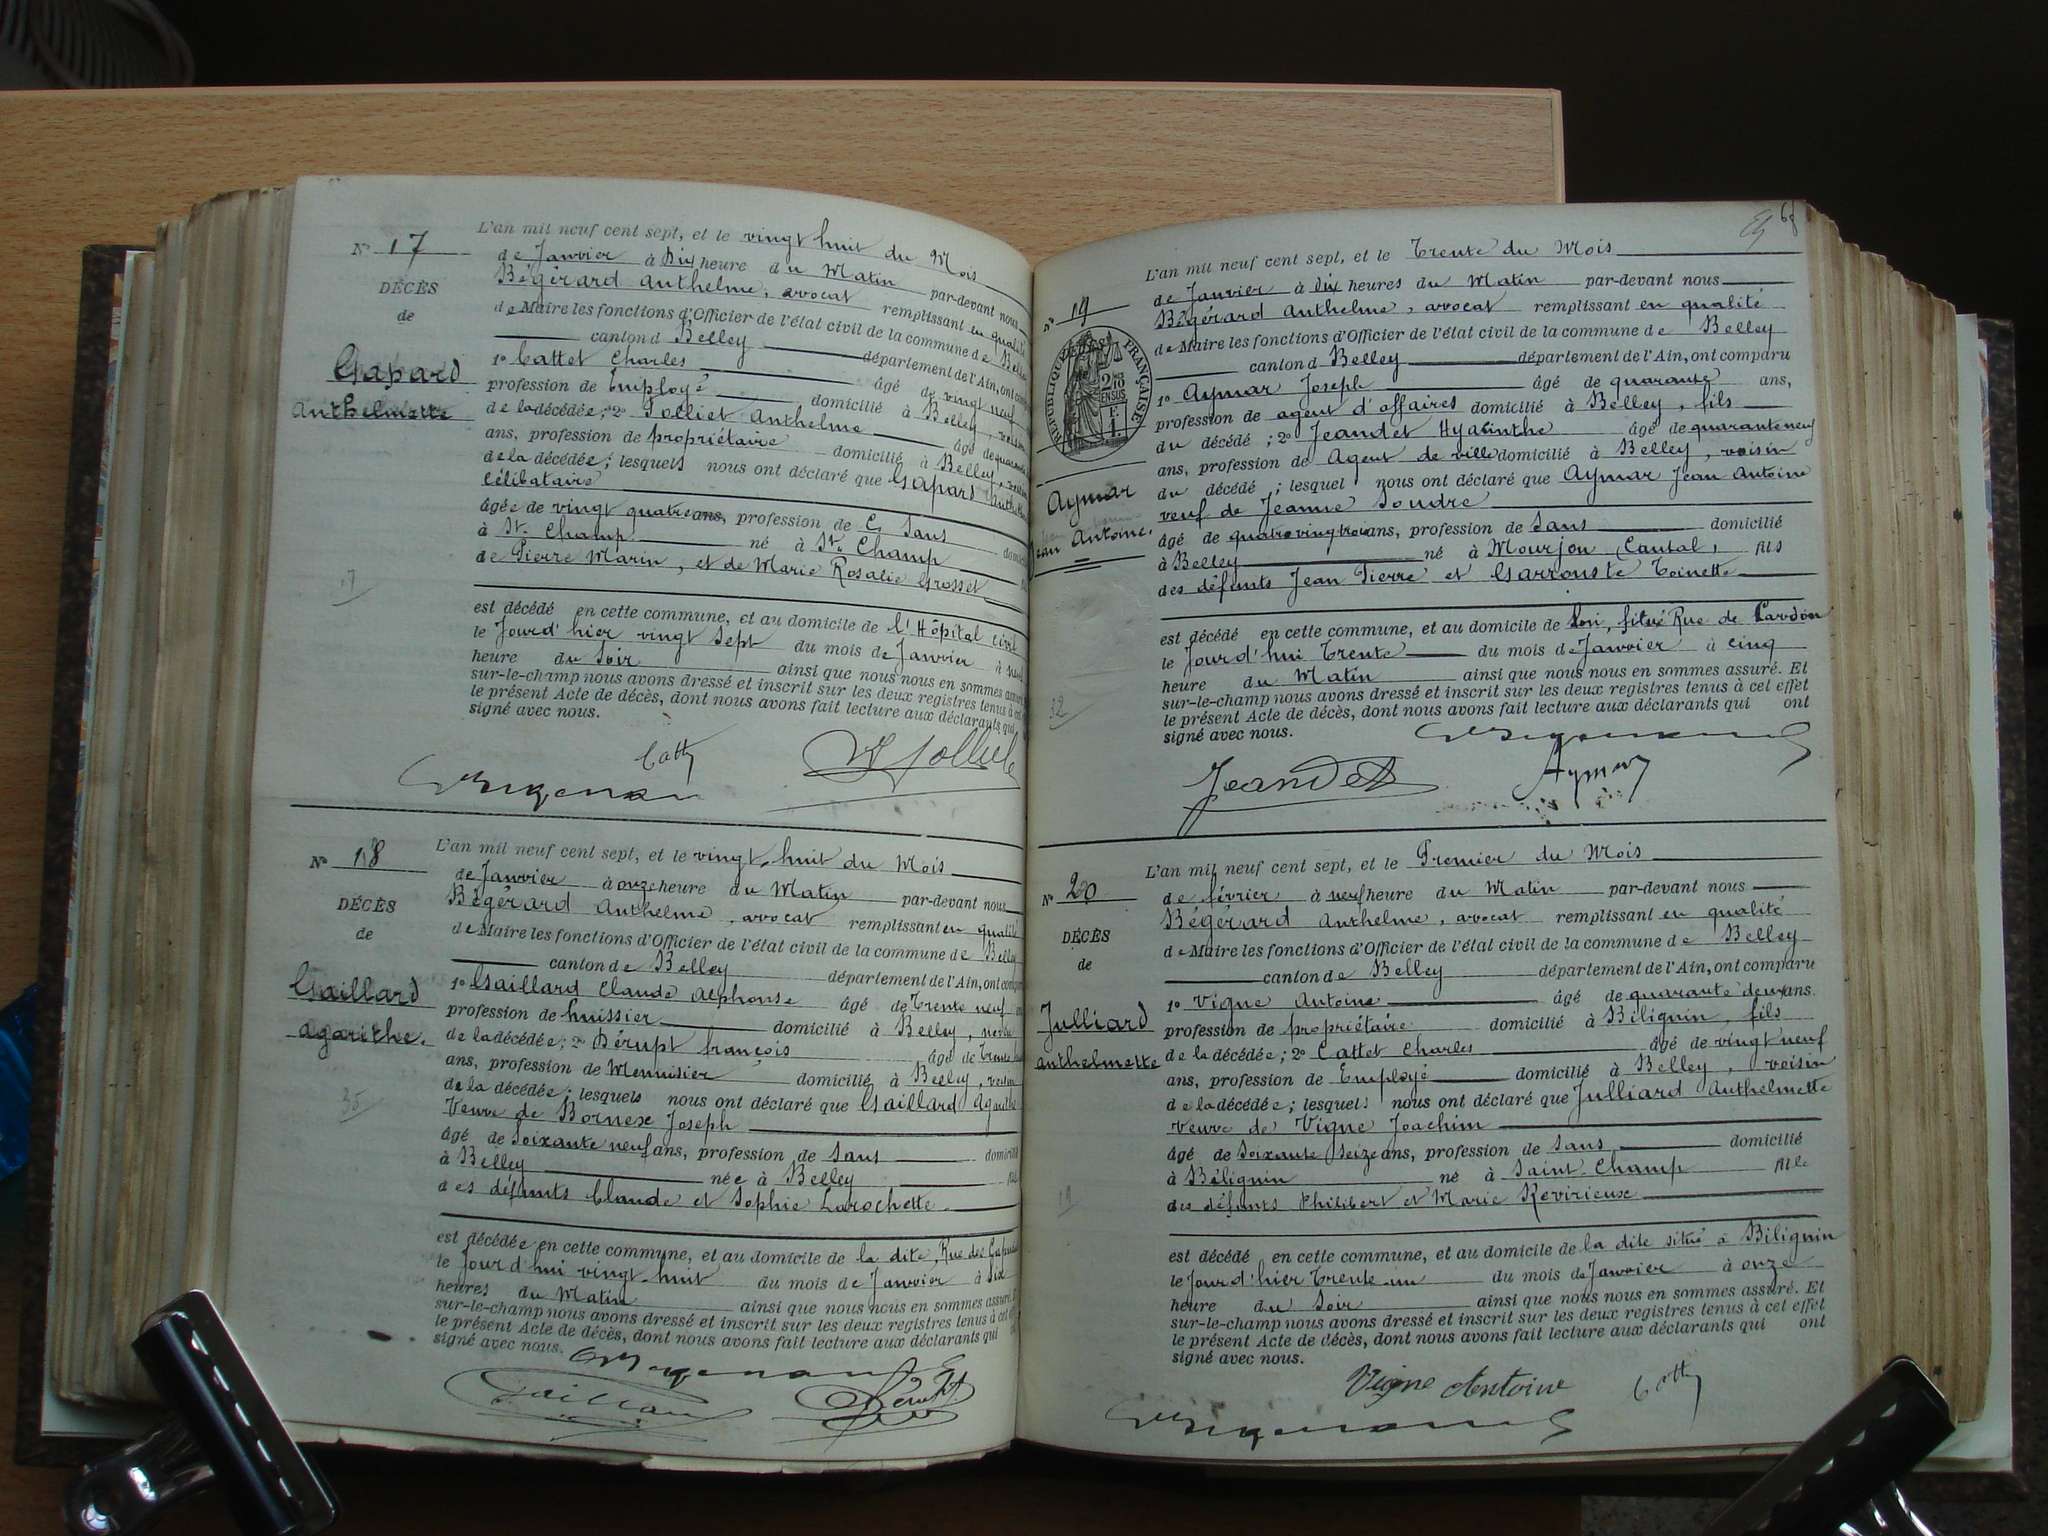 N° 17
DÉCÈS
de
Gapard
Anthelmette
17
L'an mil neuf cent sept, et le vingt huit du Mois
de Janvier à Dix heure du Matin par-devant nous
Bégérard Anthelme, avocat remplissant en qualité
de Maire les fonctions d'Officier de l'état civil de la commune de Belley
canton d Belley département de l'Ain, ont comparu
1° Cattet Charles âgé de vingt neuf
profession de Employé domicilié à Belley, voisin
de la décédée; 2° Jolliet Anthelme âgé de quarante
ans, profession de propriétaire domicilié à Belley, voisin
de la décédée; lesquels nous ont déclaré que Gapard Anthelmette
Célibataire
âgée de vingt quatre ans, profession de Sans
à St. Champ né à St. Champ
de Pierre Marin, et de Marie Rosalie Grosset
est décédé en cette commune, et au domicile de l'Hôpital civil
le Jour d'hier vingt sept du mois de Janvier à neuf
heure du Soir ainsi que nous nous en sommes assuré
sur-le-champ nous avons dressé et inscrit sur les deux registres tenus à cet
le présent Acte de décès, dont nous avons fait lecture aux déclarants qui
signé avec nous.
N° 18
DÉCÈS
de
Gaillard
Agarithe.
35
L'an mil neuf cent sept, et le vingt huit du Mois
de Janvier à onze heure du Matin par-devant nous
Bégérard Anthelme, avocat remplissant en qualité
de Maire les fonctions d'Officier de l'état civil de la commune de Belley
canton de Belley département de l'Ain, ont comparu
1° Gaillard Claude Alphonse âgé de Trente neuf
profession de huissier domicilié à Belley, neveu
de la décédée; 2° Dérupt françois âgé de Trente
ans, profession de Menuisier domicilié à Belley, voisin
de la décédée; lesquels nous ont déclaré que Gaillard Agarithe
Veuve de Bornex Joseph
âgé de Soixante neuf ans, profession de Sans domicilié
à Belley née à Belley fille
des défunts Claude et Sophie Larochette
est décédée en cette commune, et au domicile de la dite, Rue des
le Jour d'hui vingt huit du mois de Janvier à Six
heures du Matin ainsi que nous nous en sommes assuré
sur-le-champ nous avons dressé et inscrit sur les deux registres tenus à cet
le présent Acte de décès, dont nous avons fait lecture aux déclarants qui
signé avec nous.
Gaillard
68
N° 19
RÉPUBLIQUE FRANÇAISE
Aymar
Jean Antoine.
32
L'an mil neuf cent sept, et le Trente du Mois
de Janvier à dix heures du Matin par-devant nous
Bégérard Anthelme, avocat remplissant en qualité
de Maire les fonctions d'Officier de l'état civil de la commune de Belley
canton d Belley département de l'Ain, ont comparu
1° Aymar Joseph âgé de quarante ans,
profession de agent d'affaires domicilié à Belley, fils
du décédé; 2° Jeandet Hyacinthe âgé de quarante neuf
ans, profession de Agent de ville domicilié à Belley, voisin
du décédé; lesquel nous ont déclaré que Aymar Jean Antoine
veuf de Jeanne Soudre
âgé de quatre vingt trois ans, profession de Sans domicilié
à Belley né à Mourjou Cantal, fils
des défunts Jean Pierre et Garrouste Toinette
est décédé en cette commune, et au domicile de Son, situé Rue de Pardon
le Jour d'hui Trente du mois de Janvier à cinq
heure du Matin ainsi que nous nous en sommes assuré. Et
sur-le-champ nous avons dressé et inscrit sur les deux registres tenus à cet effet
le présent Acte de décès, dont nous avons fait lecture aux déclarants qui ont
signé avec nous.
Jeandet Aymar
N° 20
DÉCÈS
de
Julliard
Anthelmette
19
L'an mil neuf cent sept, et le Premier du Mois
de février à neuf heure du Matin par-devant nous
Bégérard Anthelme, avocat remplissant en qualité
de Maire les fonctions d'Officier de l'état civil de la commune de Belley
canton de Belley département de l'Ain, ont comparu
1° Vigne Antoine âgé de quarante deux ans.
profession de propriétaire domicilié à Bilignin, fils
de la décédée; 2° Cattet Charles âgé de vingt neuf
ans, profession de Employé domicilié à Belley, voisin
de la décédée; lesquels nous ont déclaré que Julliard Anthelmette
veuve de Vigne Joachim
âgé de Soixante Seize ans, profession de Sans domicilié
à Bélignin né à Saint Champ fille
des défunts Philibert et Marie Revirieux
est décédé en cette commune, et au domicile de la dite situé à Bilignin
le Jour d'hier Trente un du mois de Janvier à onze
heure du Soir ainsi que nous nous en sommes assuré. Et
sur-le-champ nous avons dressé et inscrit sur les deux registres tenus à cet effet
le présent Acte de décès, dont nous avons fait lecture aux déclarants qui ont
signé avec nous.
Vigne Antoine